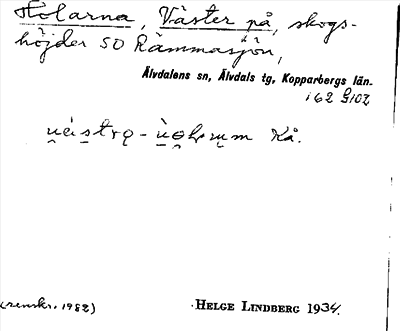 Hölarna, Väster på, skogs-
höjder SO Rämmasjön,
Älvdalens sn, Älvdals tg, Kopparbergs län.
162 G10z
Kå.
(renskr. 1982)
HELGE LINDBERG 1934.